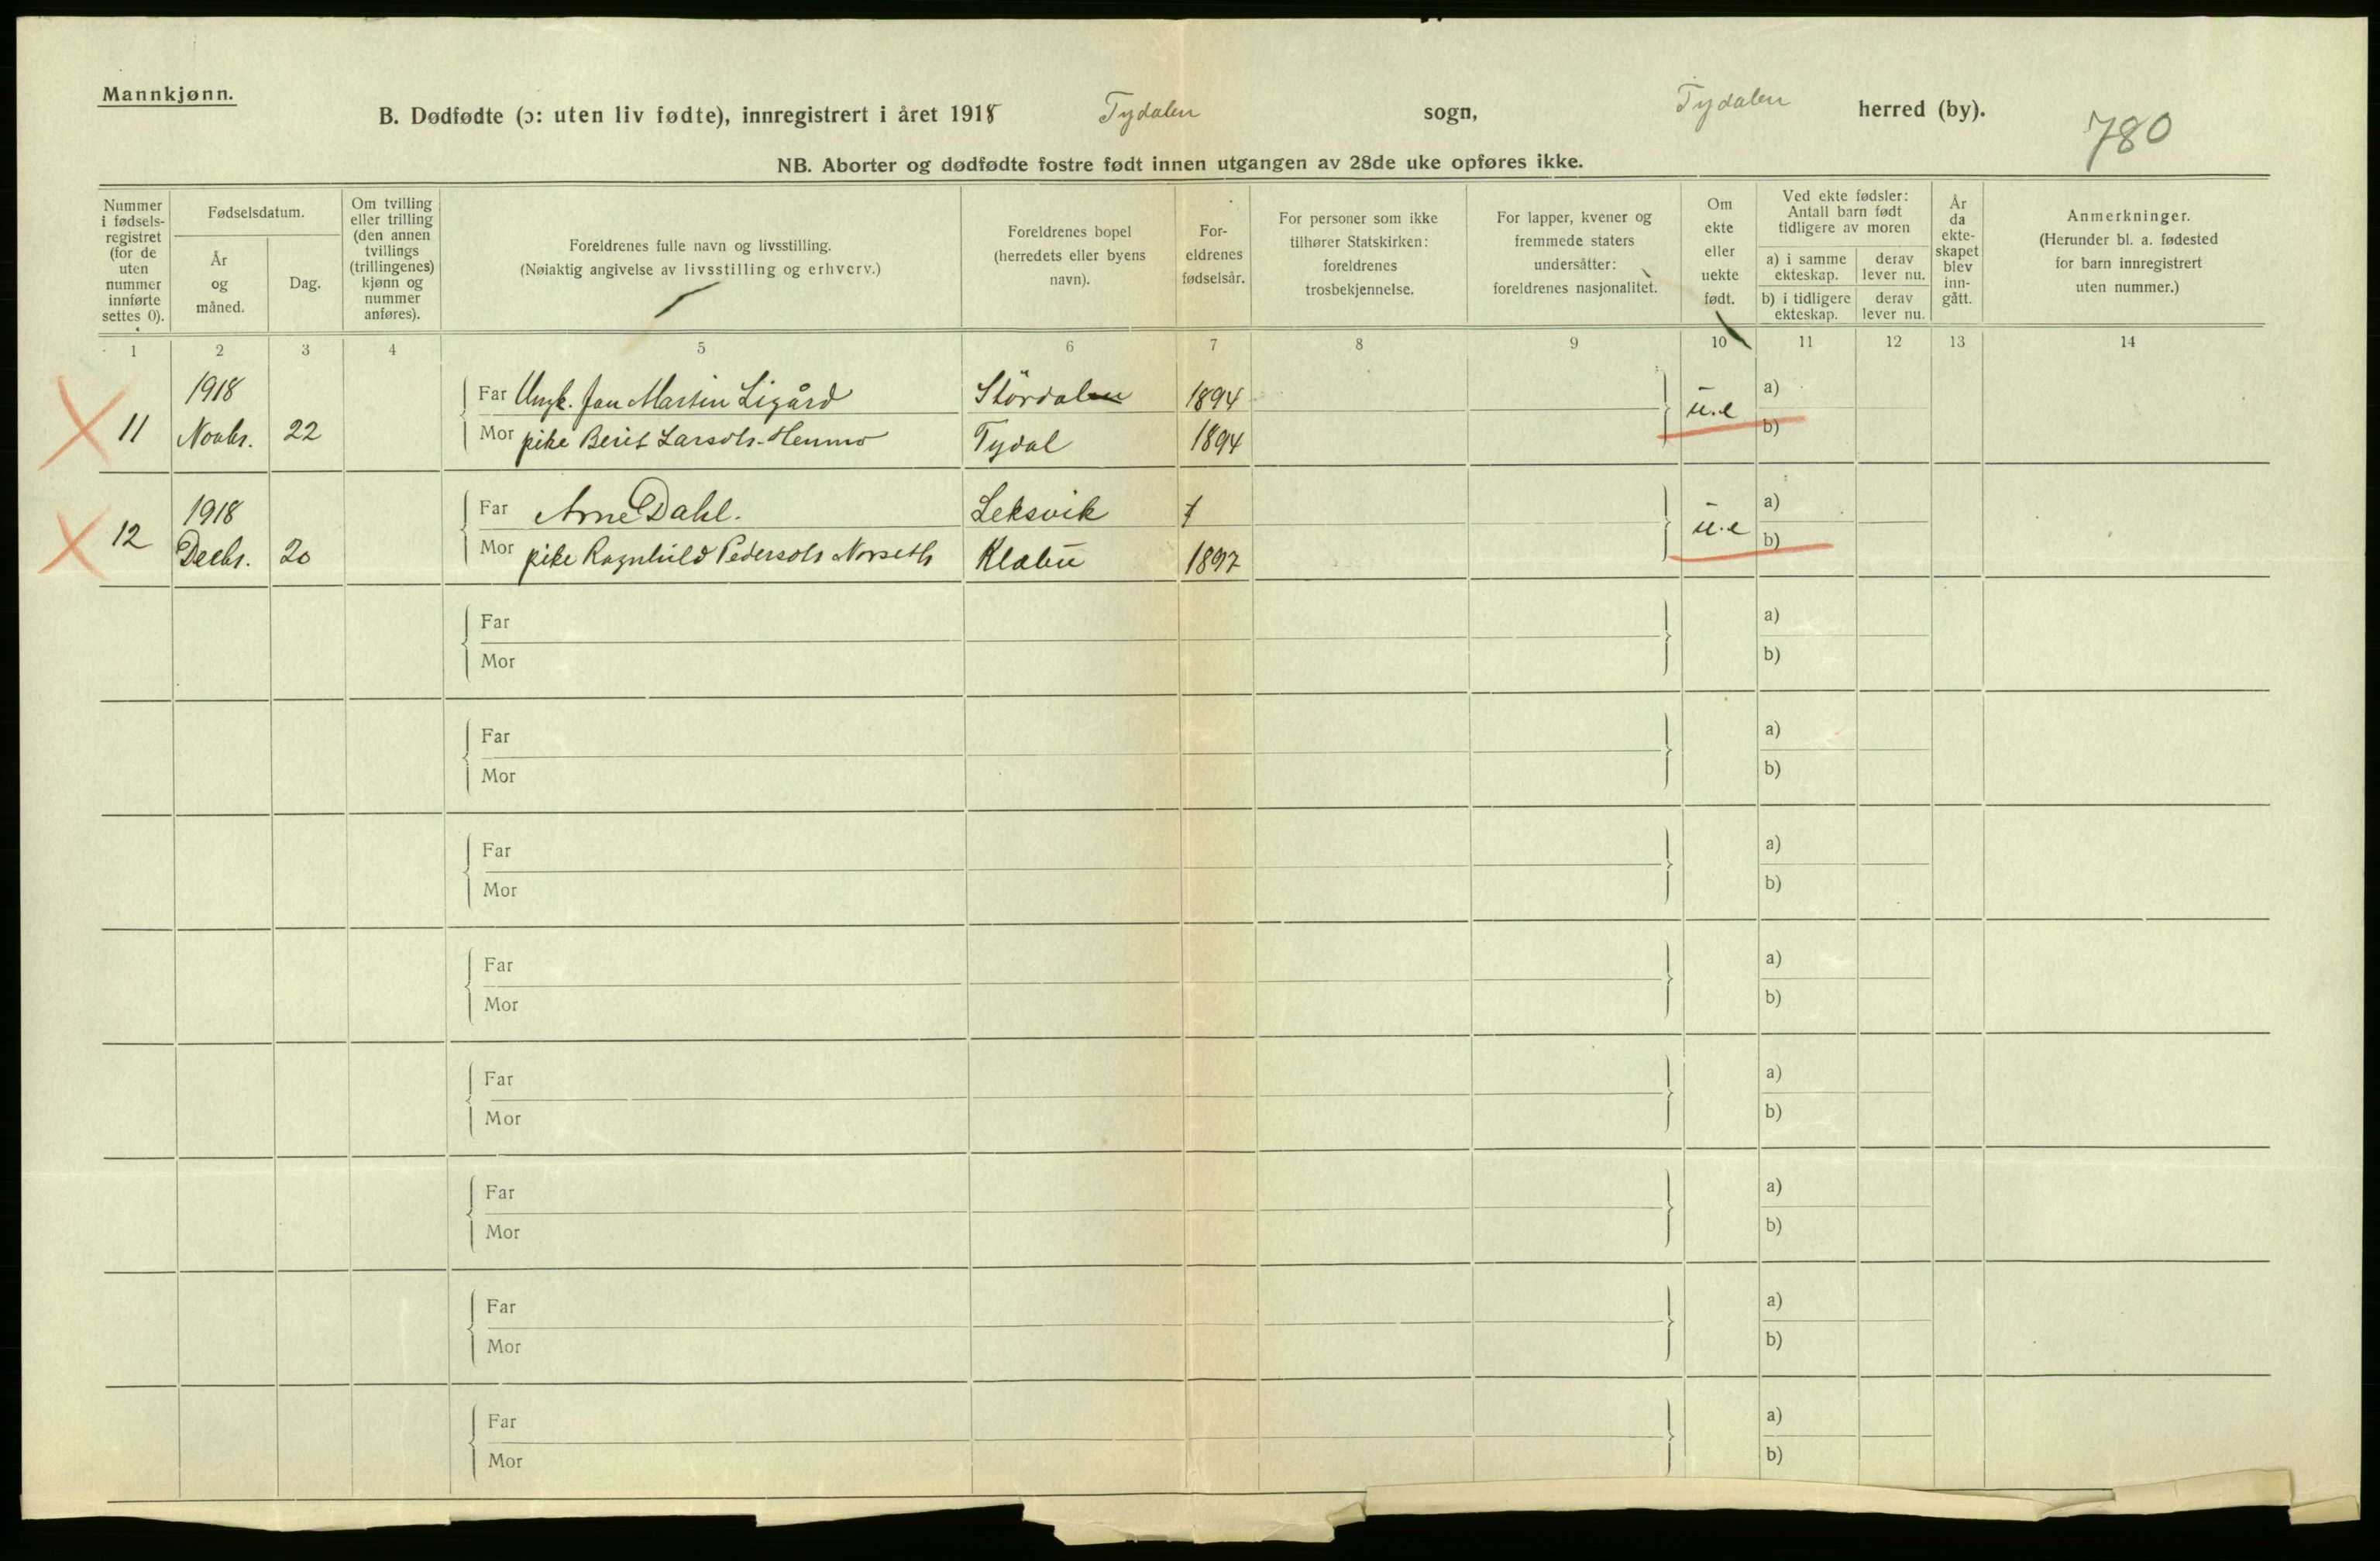 Mannkjønn.
B. Dødfødte (ɔ: uten liv fødte), innregistrert i året 1918 Tydalen sogn, Tydalen herred (by).
780
NB. Aborter og dødfødte fostre født innen utgangen av 28de uke opføres ikke.
Nummer i fødsels-registret (for de uten nummer innførte settes 0).
Fødselsdatum.
År og måned.
Dag.
Om tvilling eller trilling (den annen tvillings (trillingenes) kjønn og nummer anføres).
Foreldrenes fulle navn og livsstilling.
(Nøiaktig angivelse av livsstilling og erhverv.)
Foreldrenes bopel (herredets eller byens navn).
For-eldrenes fødselsår.
For personer som ikke tilhører Statskirken: foreldrenes trosbekjennelse.
For lapper, kvener og fremmede staters undersåtter: foreldrenes nasjonalitet.
Om ekte eller uekte født.
Ved ekte fødsler: Antall barn født tidligere av moren
a) i samme ekteskap. derav lever nu.
b) i tidligere ekteskap. derav lever nu.
År da ekte-skapet blev inn-gått.
Anmerkninger.
(Herunder bl. a. fødested for barn innregistrert uten nummer.)
1 2 3 4 5 6 7 8 9 10 11 12 13 14
1918
Far Ungk. Jon Martin Ligård Stördalen 1894 u.e a)
11 Novbr. 22
Mor pike Berit Larsdtr. Henmo Tydal 1894 b)
1918
Far Arne Dahl. Leksvik u.e a)
12 Decbr. 20
Mor pike Ragnhild Pedersdtr Norseth Klæbu 1897 b)
Far a)
Mor b)
Far a)
Mor b)
Far a)
Mor b)
Far a)
Mor b)
Far a)
Mor b)
Far a)
Mor b)
Far a)
Mor b)
Far a)
Mor b)